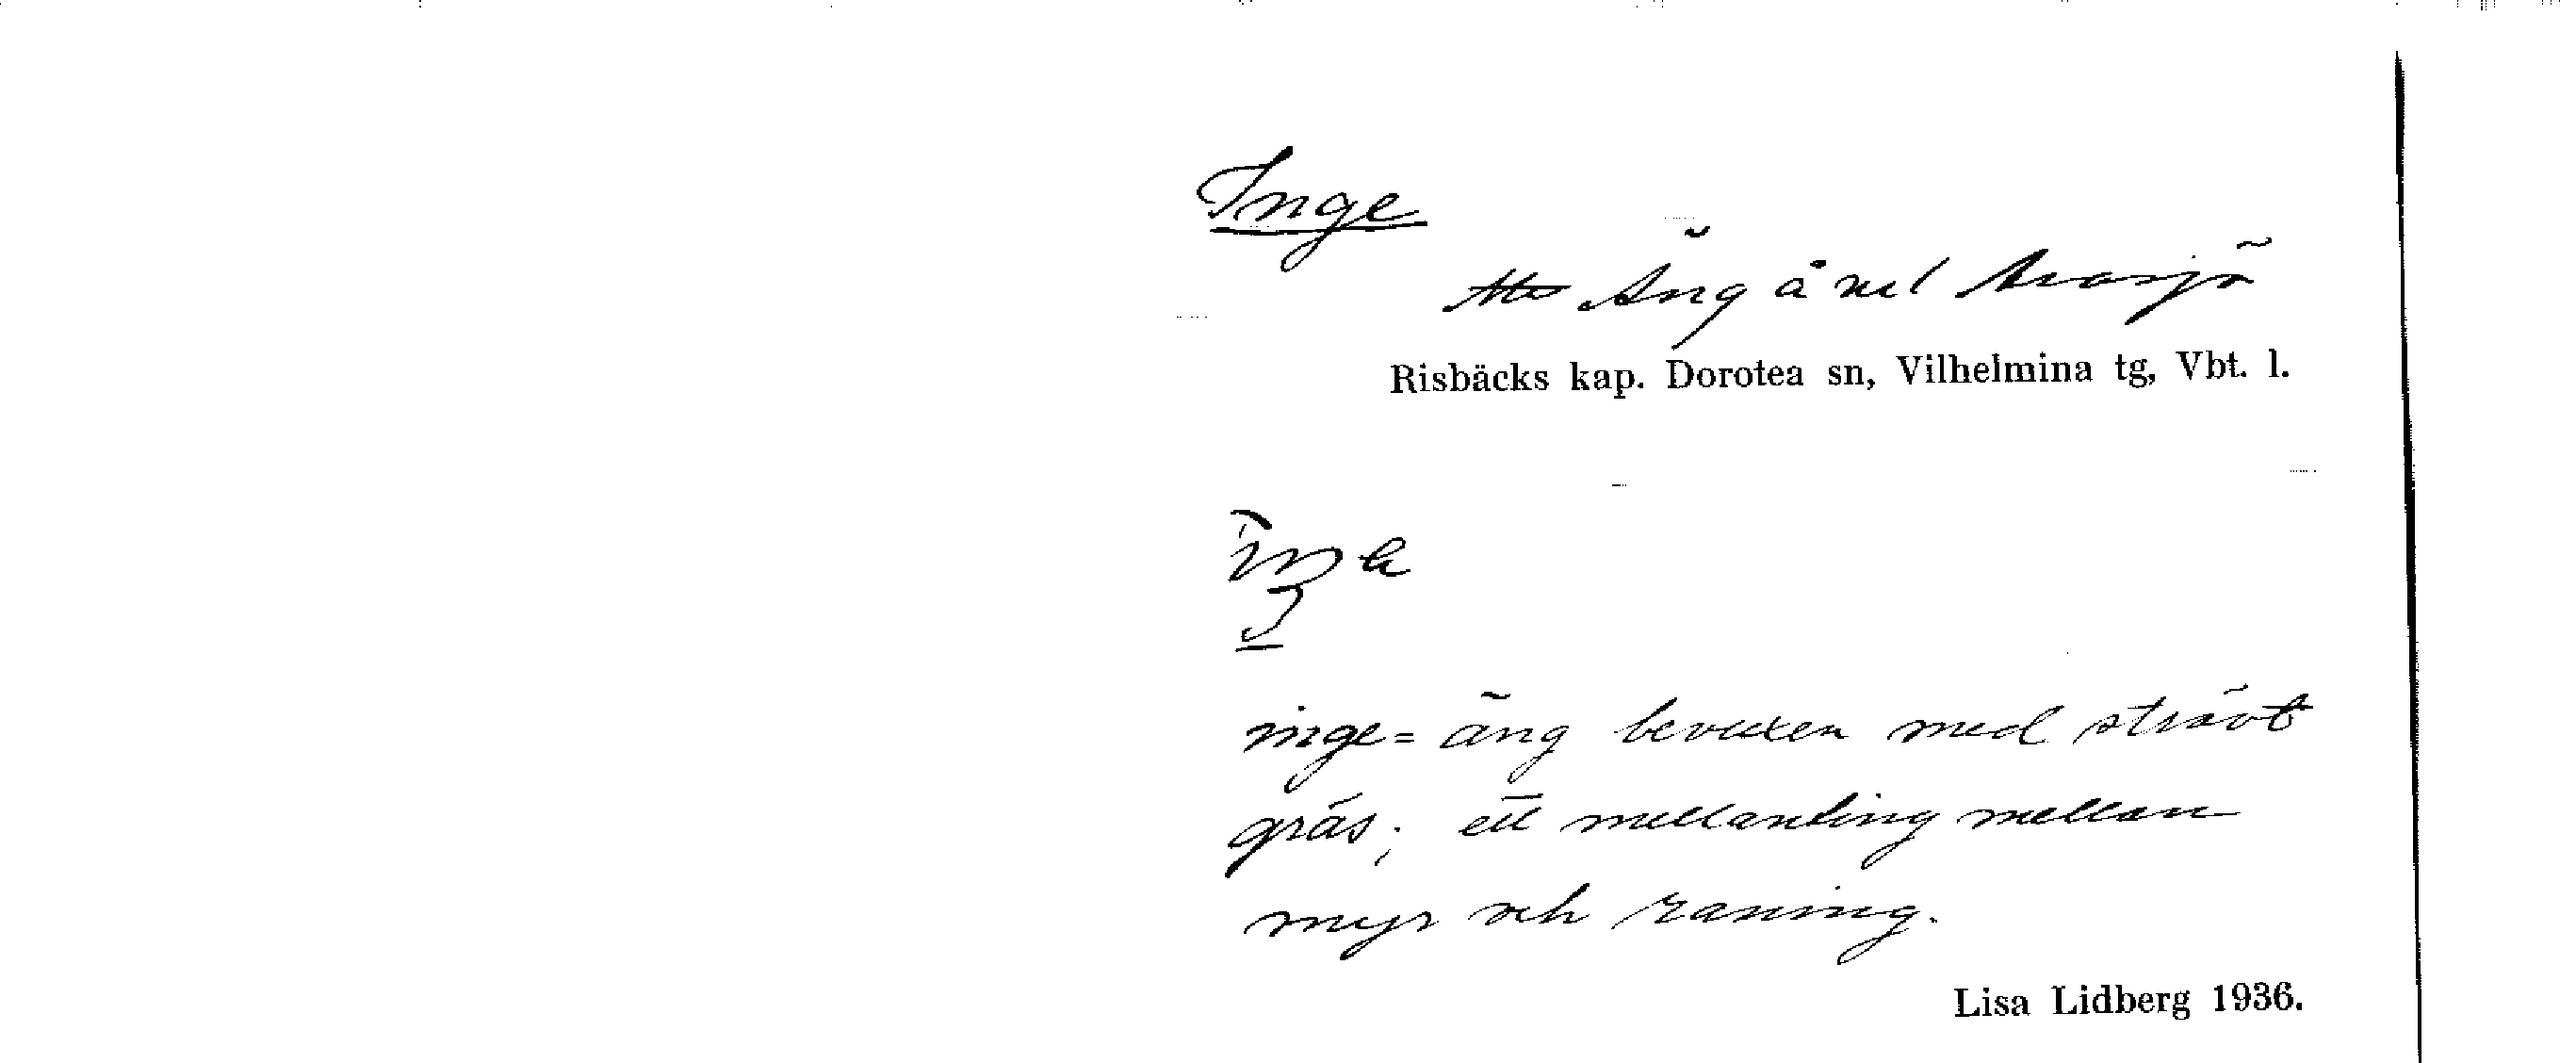 Inge
Äng å nel Avasjö
Risbäcks kap. Dorotea sn, Vilhelmina tg, Vbt. l.
inge = äng bevuxen med strävt
gräs; ett mellanting mellan
myr och raning.
Lisa Lidberg 1936.